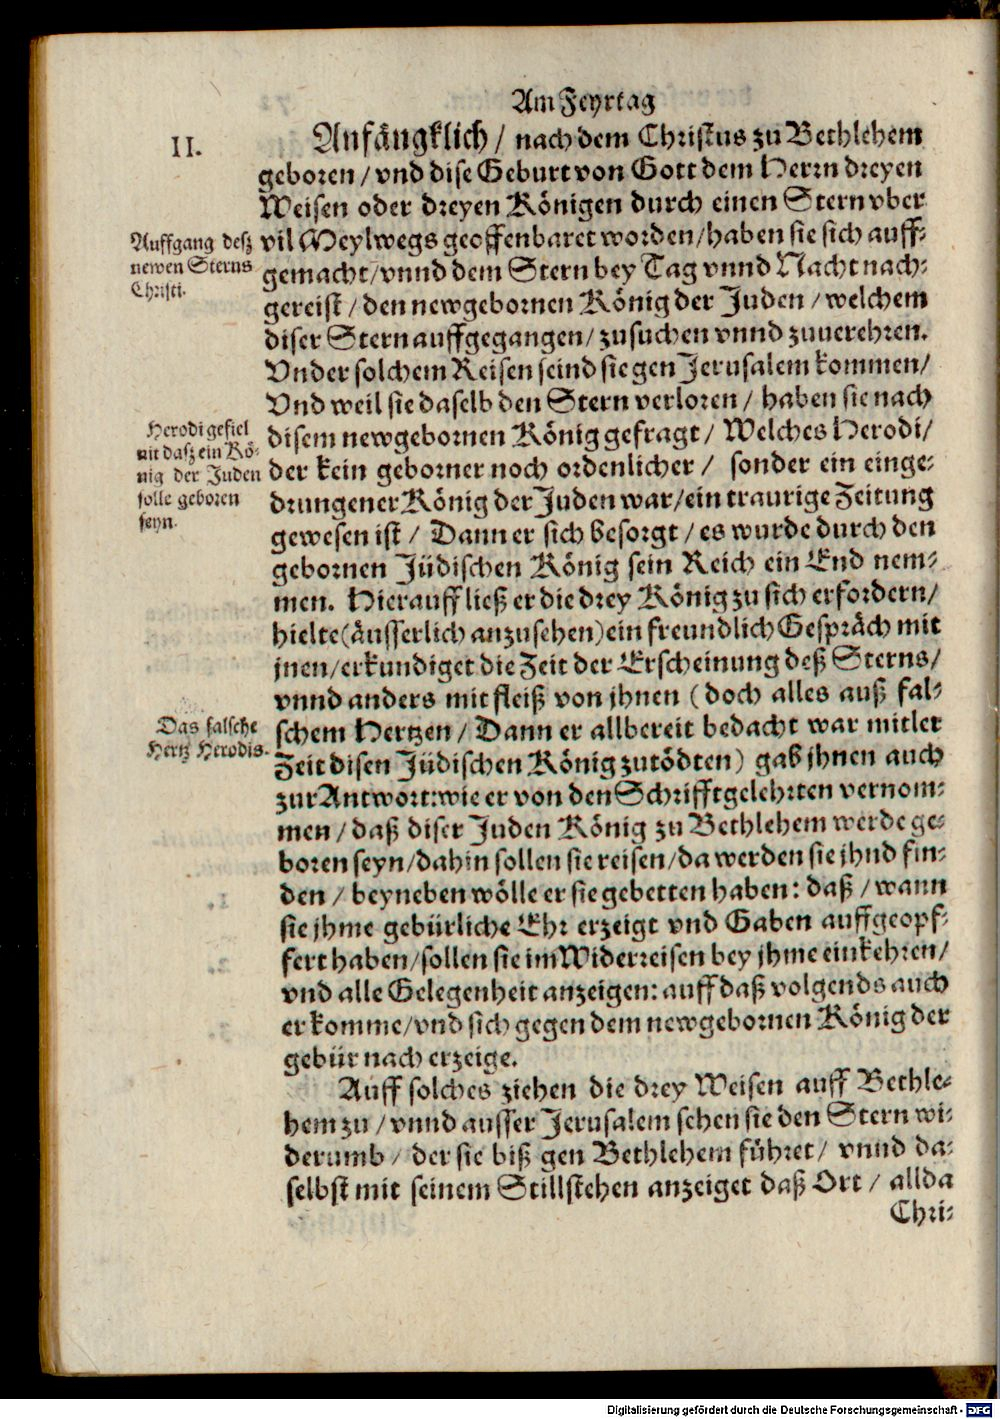 Am Feyrtag
II.
Anfängklich / nach dem Christus zu Bethlehem
geboren / vnd dise Geburt von Gott dem Herrn dreyen
Weisen oder dreyen Königen durch einen Stern vber
Auffgang deß
newen Sterns
Christi.
vil Meylwegs geoffenbaret worden / haben sie sich auff-
gemacht / vnnd dem Stern bey Tag vnnd Nacht nach-
gereist / den newgebornen König der Juden / welchem
diser Stern auffgegangen / zusuchen vnnd zuuerehren.
Vnder solchem Reisen seind sie gen Jerusalem kommen /
Vnd weil sie daselb den Stern verloren / haben sie nach
Herodi gefiel
nit daß ein Kö-
nig der Juden
solle geboren
seyn.
disem newgebornen König gefragt / Welches Herodi /
der kein geborner noch ordenlicher / sonder ein einge-
drungener König der Juden war / ein traurige Zeitung
gewesen ist / Dann er sich besorgt / es wurde durch den
gebornen Jüdischen König sein Reich ein End nem-
men. Hierauff ließ er die drey König zu sich erfordern /
hielte (äusserlich anzusehen) ein freundlich Gespräch mit
jnen / erkundiget die Zeit der Erscheinung deß Sterns /
vnnd anders mit fleiß von jhnen (doch alles auß fal-
Das falsche
Hertz Herodis.
schem Hertzen / Dann er allbereit bedacht war mitler
Zeit disen Jüdischen König zutödten) gab jhnen auch
zur Antwort: wie er von den Schrifftgelehrten vernom-
men / daß diser Juden König zu Bethlehem werde ge-
boren seyn / dahin sollen sie reisen / da werden sie jhnd fin-
den / beyneben wölle er sie gebetten haben: daß / wann
sie jhme gebürliche Ehr erzeigt vnd Gaben auffgeopf-
fert haben / sollen sie im Widerreisen bey jhme einkehren /
vnd alle Gelegenheit anzeigen: auff daß volgends auch
er komme / vnd sich gegen dem newgebornen König der
gebür nach erzeige.
Auff solches ziehen die drey Weisen auff Bethle-
hem zu / vnnd ausser Jerusalem sehen sie den Stern wi-
derumb / der sie biß gen Bethlehem führet / vnnd da-
selbst mit seinem Stillstehen anzeiget daß Ort / allda
Chri-
Digitalisierung gefördert durch die Deutsche Forschungsgemeinschaft - DFG